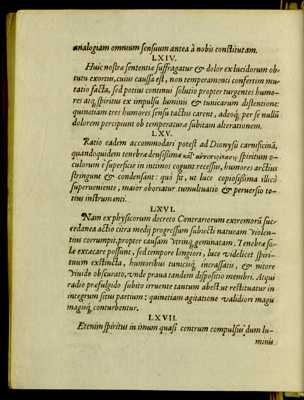 analogiam omnium sensuum antea à nobis constitutam.
LXIV.
Huic nostræ sententiæ suffragatur & dolor ex lucidorum ob-
tutu exortus, cuius caussa est, non temperamenti confertim mu-
tatio facta, sed potius continui solutio propter turgentes humo-
res atq; spiritus ex impulsu luminis & tunicarum distentione:
quoniam tres humores sensu tactus carent, adeoq; per se nullũ
dolorem percipiunt ob temperaturæ subitam alterationem.
LXV.
Ratio eadem accommodari potest ad Dionysii carnificinã,
quandoquidem tenebræ densissimæ spirituum o-
culorum è superficie in intimos copiosè recessus, humores arctius
stringunt & condensant: quo fit, ut luce copiosissima illicò
superveniente, maior oboriatur tumultuatio & perversio to-
tius instrumenti.
LXVI.
Nam ex physicorum decreto Contrariorum extremorũ suc-
cedanea actio citra medij progressum subiecti naturam violen-
tius corrumpit, propter caussam utrinq; geminatam. Tenebræ so-
læ excæcare possunt, sed tempore longiori, luce videlicet spiri-
tuum exstincta, humoribus tunicisq; incrassatis, & nitore
vivido obscurato, unde prava tandem dispositio membri. At qui
radio præfulgido subito irruente tantum abest ut restituatur in
integrum situs partium: quinetiam agitatione validiori magis
magisq; conturbentur.
LXVII.
Etenim spiritus in imum quasi centrum compulsus, dum lu-
minis